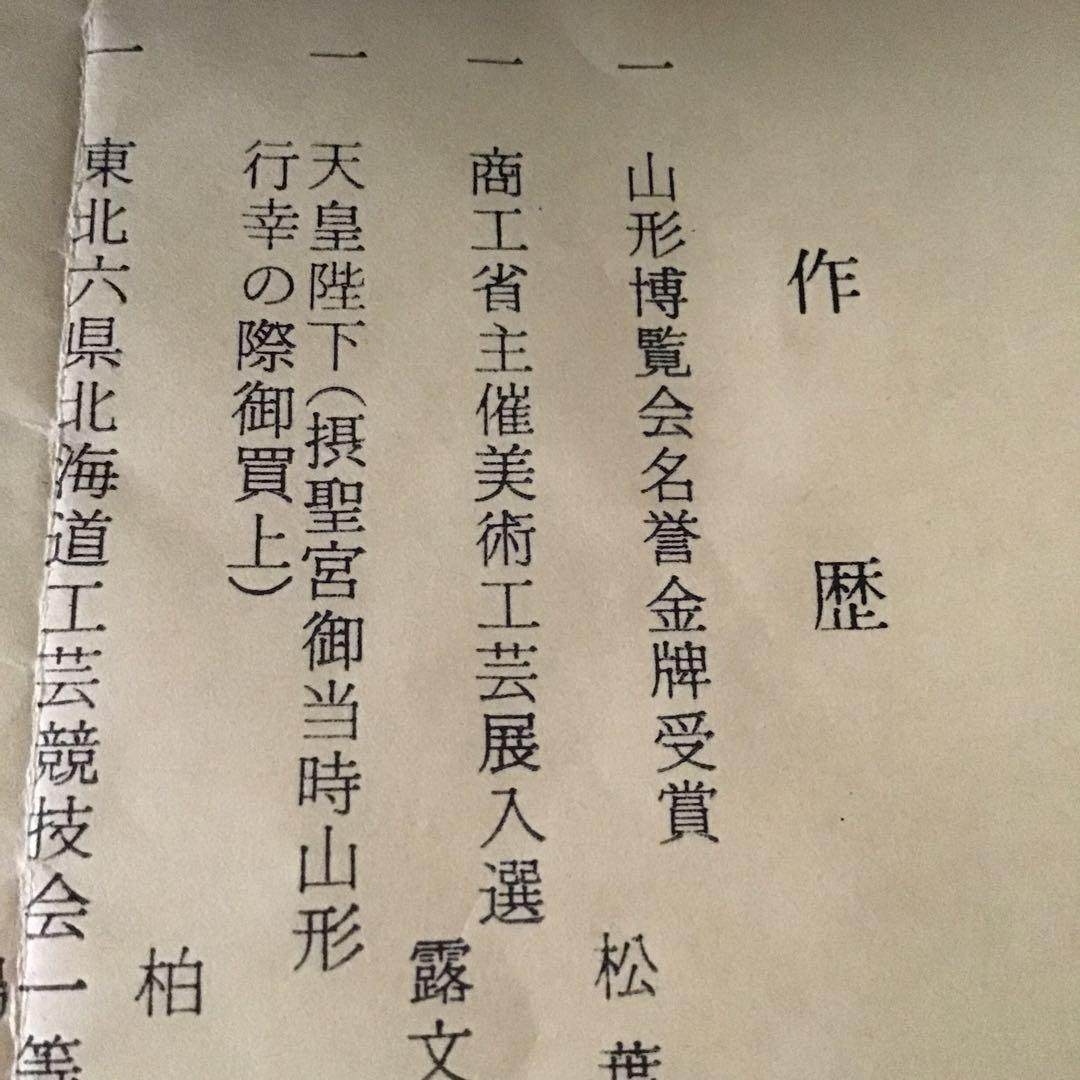 作歴
一 山形博覧会名誉金牌受賞
松葉
一 商工省主催美術工芸展入選
露文
一 天皇陛下(摂聖宮御当時山形
行幸の際御買上)
柏
一 東北六県北海道工芸競技会一等